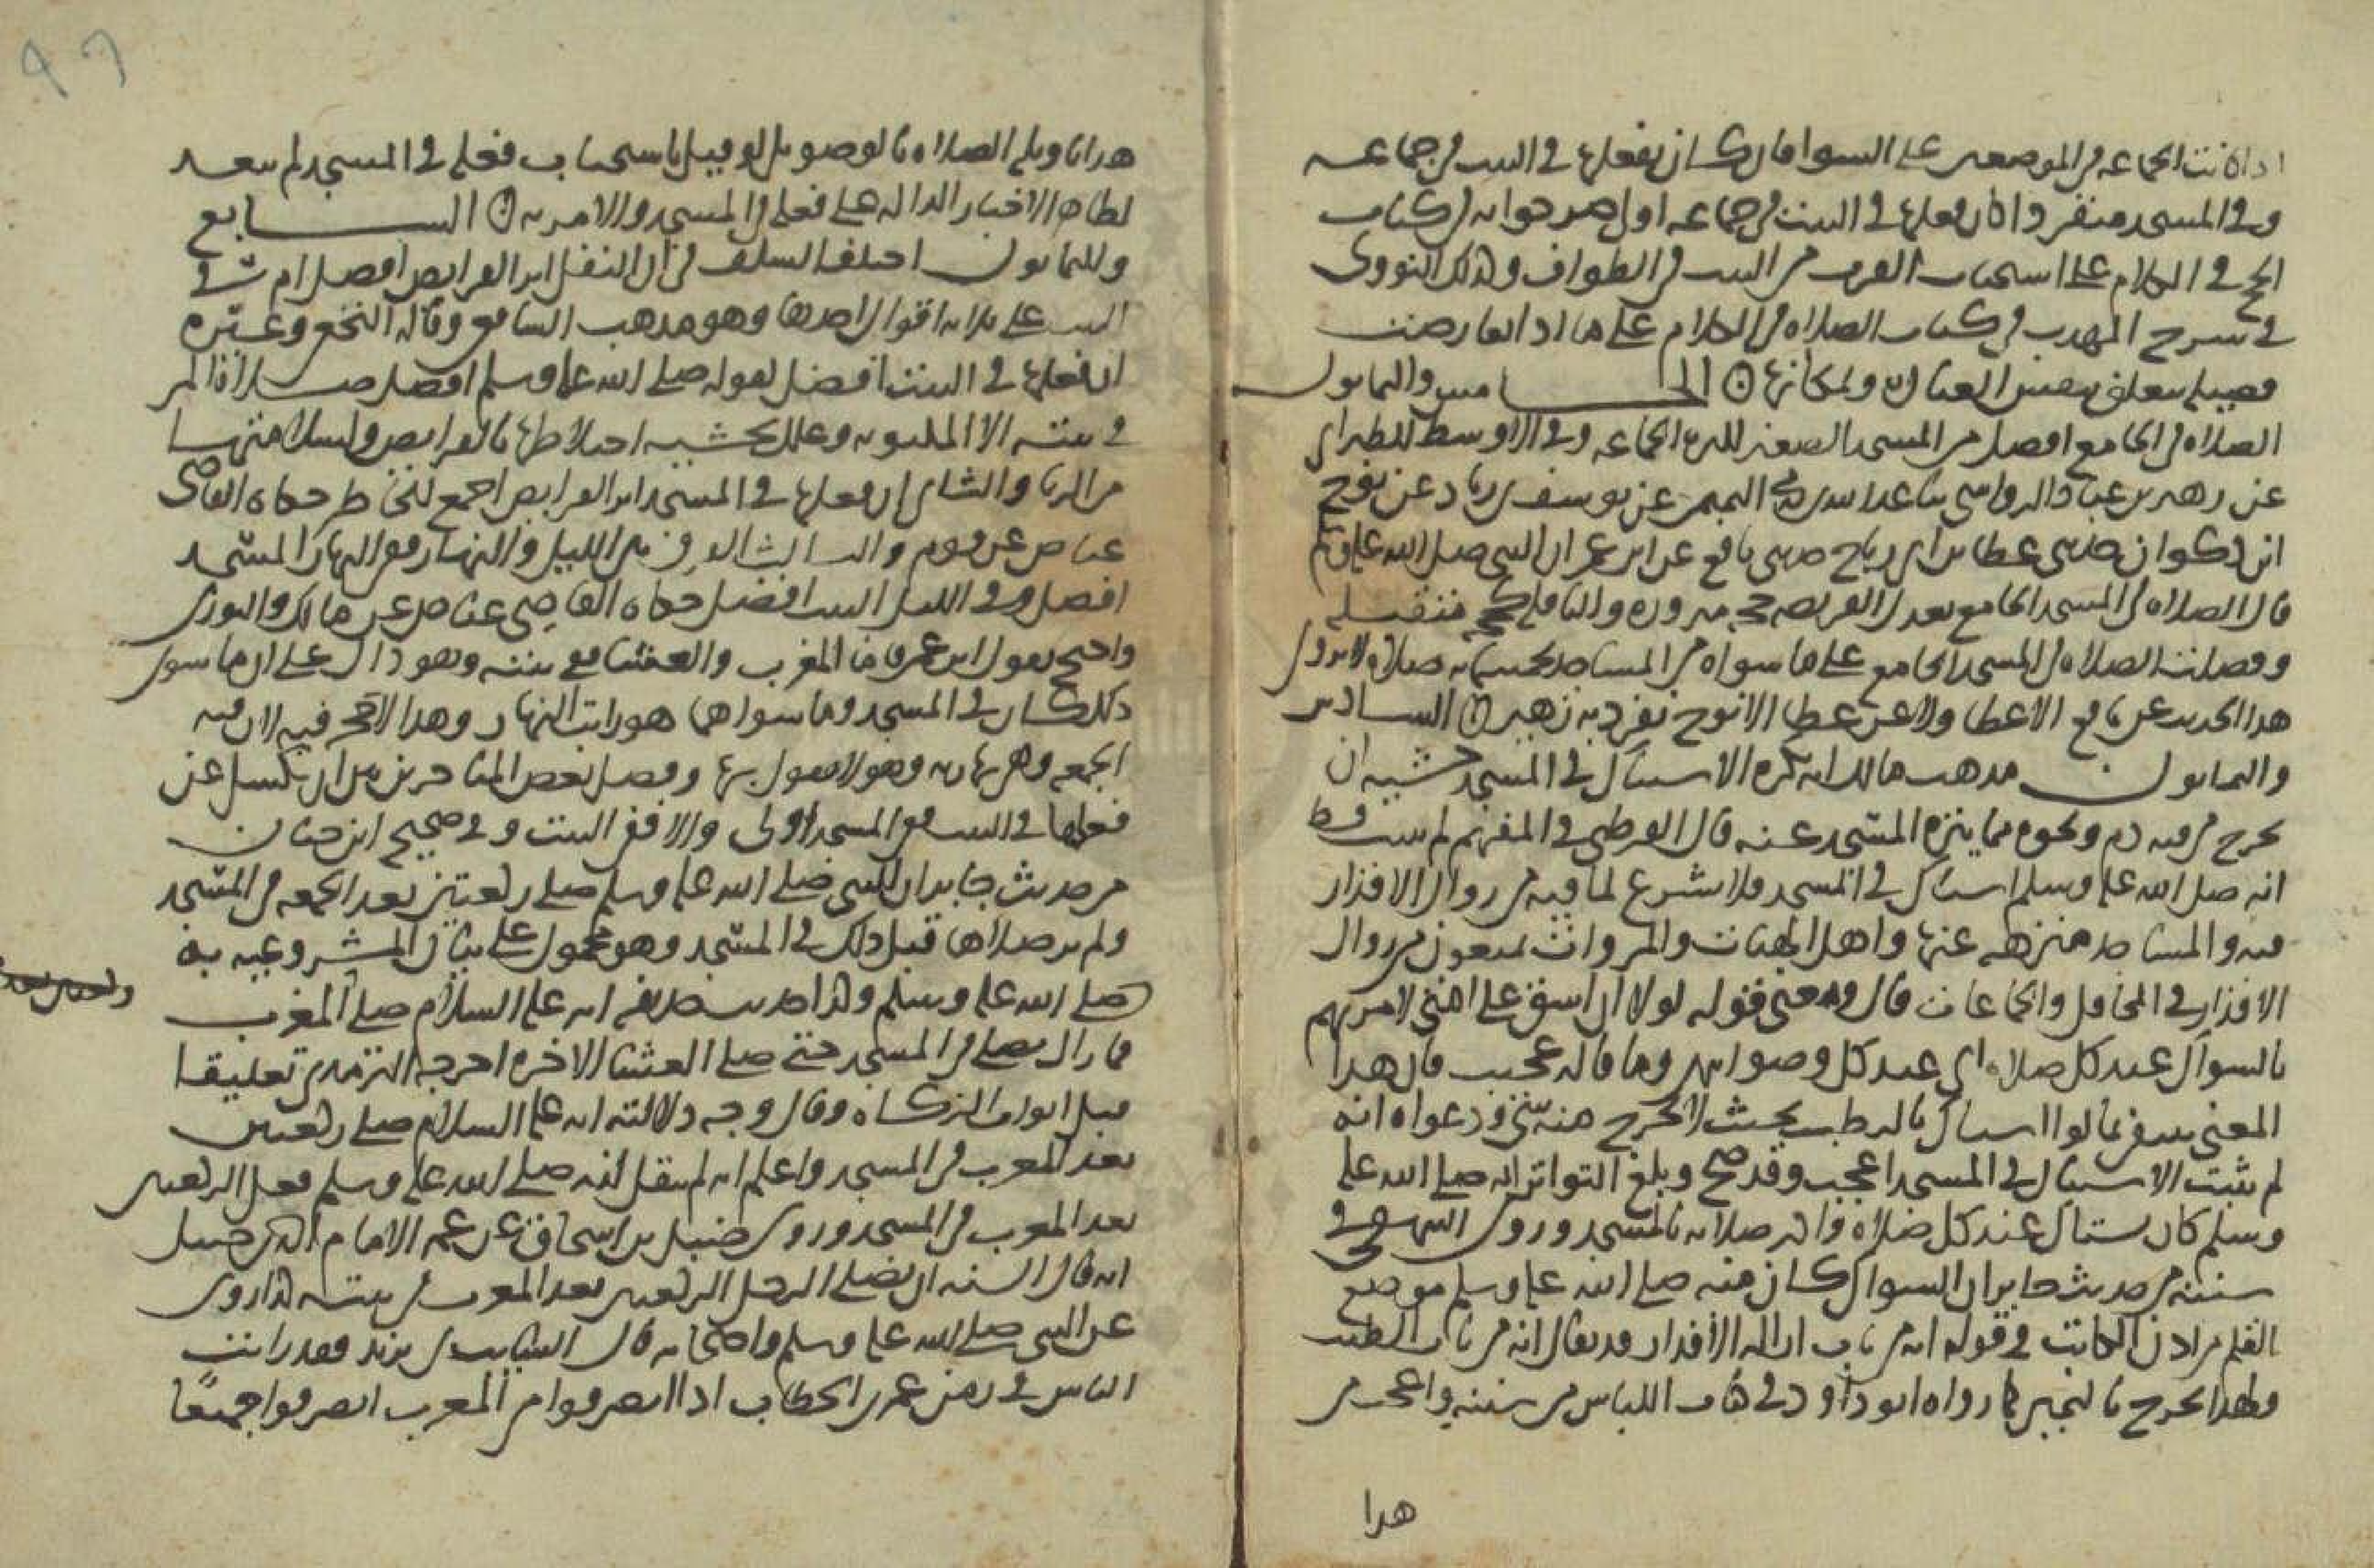 اذا كانت الجماعة في الموضعين على السوا فان كان بفعلها في البيت في جماعه
وفي المسجد منفردا كان فعلها في البيت في جماعه اولى صرحوا به في كتاب
الحج في الكلام على استحباب القرب من البيت في الطواف وكذلك النووى
في شرح المهذب في كتاب الصلاة في الكلام على ما اذا تعارضت
فضيله تتعلق بنفس العبادة ولمكانها الخامس والثمانون
الصلاه في الجامع افضل من المسجد الصغير لكثرة الجماعه وفي الاوسط للطبراني
عن زهير بن عباد الرواسي ثنا عبد الله بن البجير عن يوسف بن زياد عن نوح
ابن ذكوان حدثنى عطا بن ابي رباح حدثنى نافع عن ابن عمر ان النبي صلى الله عليه وسلم
قال الصلاه في المسجد الجامع تعدل الفريضه حجه مبروره والنافله كحجه متقبله
وفضلت الصلاه في المسجد الجامع على ما سواه من المساجد بخمسمايه صلاة لم يرو
هذا الحديث عن نافع الا عطا ولا عن عطا الا نوح تفرد به زهير السادس
والثمانون مذهب مالك انه يكره الاستياك في المسجد خشيه ان
يخرج من فيه دم ونحوه مما ينزه المسجد عنه قال القرطبى في المفهم لم يثبت قط
انه صلى الله عليه وسلم استاك في المسجد ولا يشرع لما فيه من زوال الاقذار
فيه والمساجد منزهه عنها واهل الهيئات والمروات يمنعون من زوال
الاقذار في المحافل والجماعات قال ومعنى قوله لولا ان اشق على امتى لامرتهم
بالسواك عند كل صلاه اى عند كل وضو انتهى وما قاله عجيب فان هذا
المعنى ينتفى بما لو استاك بالرطب بحيث لا يخرج منه شي ودعواه انه
لم يثبت الاستياك في المسجد اعجب وقد صح وبلغ التواتر انه صلى الله عليه
وسلم كان يستاك عند كل صلاه واكثر صلاته بالمسجد وروى البيهقي في
سننه من حديث جابر ان السواك كان منه صلى الله عليه وسلم موضع
القلم من اذن الكاتب وقوله انه من باب ازالة الاقذار قد يقال انه من باب الطيب
ولهذا يخرج بالتبخير كما رواه ابو داود في كتاب اللباس من سننه واعجب من
هذا
هذا تاويله الصلاه بالوضو بل لو قيل باستحباب فعله في المسجد لم يبعد
لظاهر الاخبار الداله على فعله في المسجد والامر به السابع
والثمانون اختلف السلف في ان النفل اثر الفرايض افضل ام في
البيت على ثلاثه اقوال احدها وهو مذهب الشافعي وقاله النخعى وعبيده
ان فعلها في البيت افضل لقوله صلى الله عليه وسلم افضل صلاة المر
في بيته الا المكتوبه وعلل بخشيه اختلاطها بالفرايض وليسلم منها
من الريا والثاني ان فعلها في المسجد اثر الفرايض اجمع للخاطر حكاه القاضى
عياض عن قوم والثالث الفرق بين الليل والنهار ففي النهار المسجد
افضل وفي الليل البيت افضل حكاه القاضى عياض عن مالك والثورى
واحتج بقول ابن عمر فاما المغرب والعشا ففي بيته وهو دال على ان ما سوى
ذلك كان في المسجد وما سواهما هو راتبة النهار وهذا لا حجه فيه لان فيه
الجمعه وهي نهاريه وهو لا يقول بها وفصل بعض المتاخرين بين ان يكسل عن
فعلها في البيت ففي المسجد اولى والا ففي البيت وفي صحيح ابن حبان
من حديث جابر ان النبي صلى الله عليه وسلم صلى ركعتين بعد الجمعه في المسجد
ولم ير صلاها قبل ذلك في المسجد وهو محمول على بيان المشروعيه به
صلى الله عليه وسلم وكذا حديث حذيفه انه عليه السلام صلى المغرب
فما زال يصلى في المسجد حتى صلى العشا الاخره اخرجه الترمذى تعليقا
قبل ابواب الزكاه وقال وجه دلالته انه عليه السلام صلى ركعتين
بعد المغرب في المسجد واعلم انه لم ينقل انه صلى الله عليه وسلم فعل الركعتين
بعد المغرب في المسجد وروى حنبل بن اسحاق عن عمه الامام احمد بن حنبل
انه قال السنه ان يصلى الرجل الركعتين بعد المغرب في بيته كذا روى
عن النبي صلى الله عليه وسلم واصحابه قال السايب بن يزيد فقد رايت
الناس في زمن عمر بن الخطاب اذا انصرفوا من المغرب انصرفوا جميعًا